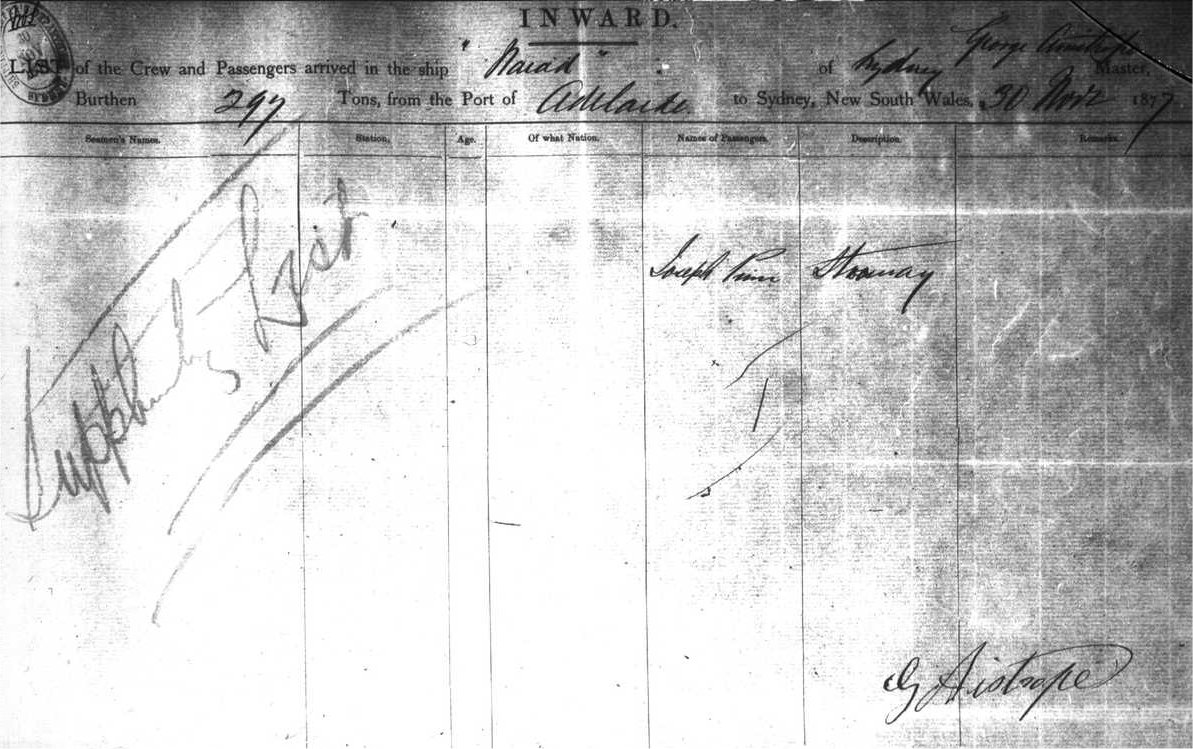 INWARD.
George
LIST of the Crew and Passengers arrived in the ship "Naiad" of Sydney Master,
Burthen 297 Tons, from the Port of Adelaide to Sydney, New South Wales, 30 Novr 1877
Seamen's Names. Station. Age. Of what Nation. Names of Passengers. Description. Remarks.
Joseph Stowaway
List
G Aistrope